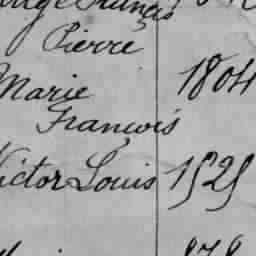 Pierre
Marie 1804
François
Victor Louis 1525